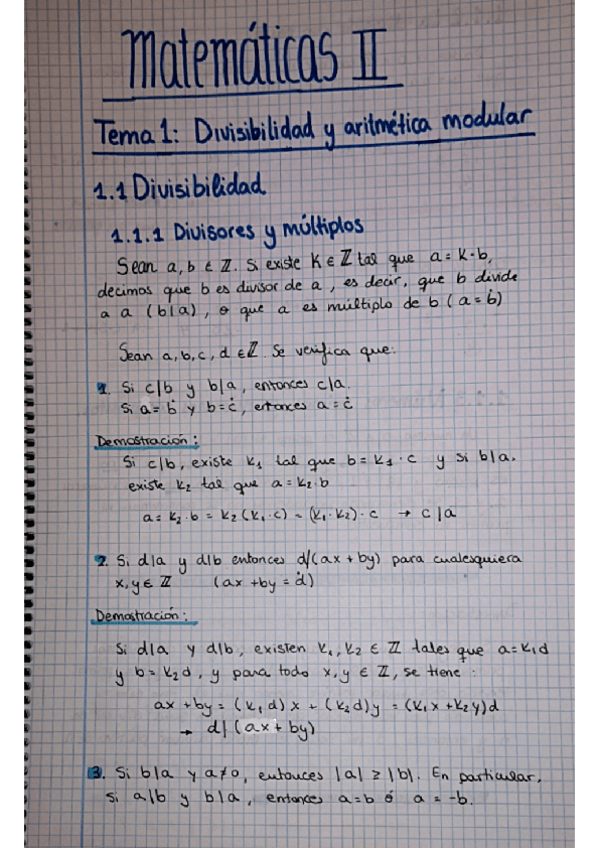 Matemáticas II
Tema 1: Divisibilidad y aritmética modular
1.1 Divisibilidad
1.1.1 Divisores y múltiplos
Sean a, b ∈ ℤ. Si existe K ∈ ℤ tal que a = K·b,
decimos que b es divisor de a, es decir, que b divide
a a (b|a), o que a es múltiplo de b (a = ḃ)
Sean a, b, c, d ∈ ℤ. Se verifica que:
1. Si c|b y b|a, entonces c|a.
Si a = ḃ y b = ċ, entonces a = ċ
Demostración:
Si c|b, existe k₁ tal que b = k₁·c y si b|a,
existe k₂ tal que a = k₂·b
a = k₂·b = k₂(k₁·c) = (k₁·k₂)·c → c|a
2. Si d|a y d|b entonces d/(ax + by) para cualesquiera
x, y ∈ ℤ (ax + by = ḋ)
Demostración:
Si d|a y d|b, existen k₁, k₂ ∈ ℤ tales que a = k₁d
y b = k₂d, y para todo x, y ∈ ℤ, se tiene:
ax + by = (k₁d)x + (k₂d)y = (k₁x + k₂y)d
→ d|(ax + by)
3. Si b|a y a≠0, entonces |a| ≥ |b|. En particular,
si a|b y b|a, entonces a = b ó a = -b.